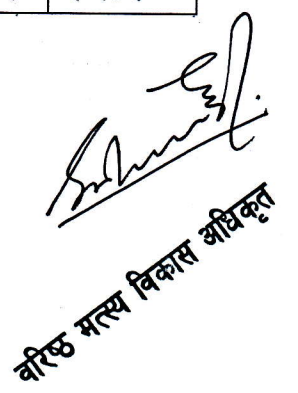 वरिष्ठ मत्स्य विकास अधिकृत